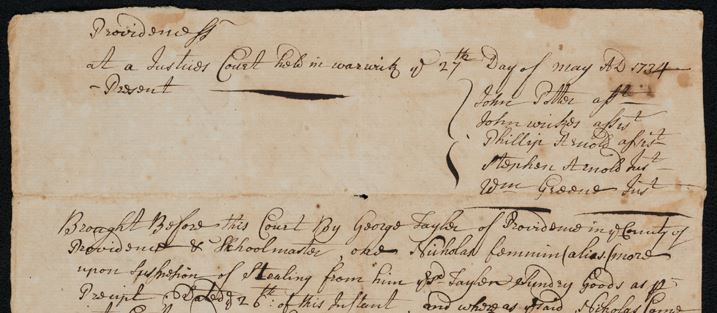 Providence ss
at a Justices Court held in warwick ye 27th Day of may AD 1734
- Present
John Potter asst
John wickes assist
Phillip Arnold assist
Stephen Arnold Just
Wm Greene Just
Brought Before this Court By George Tayler of Providence in ye County of
Providence & Schoolmaster, one Nicholas (alias) more
upon Suspesion of Stealing from him ye sd Tayler Sundry Goods as pr
Precipt Dated ye 26th: of this Instant and where as Said Nicholas Came